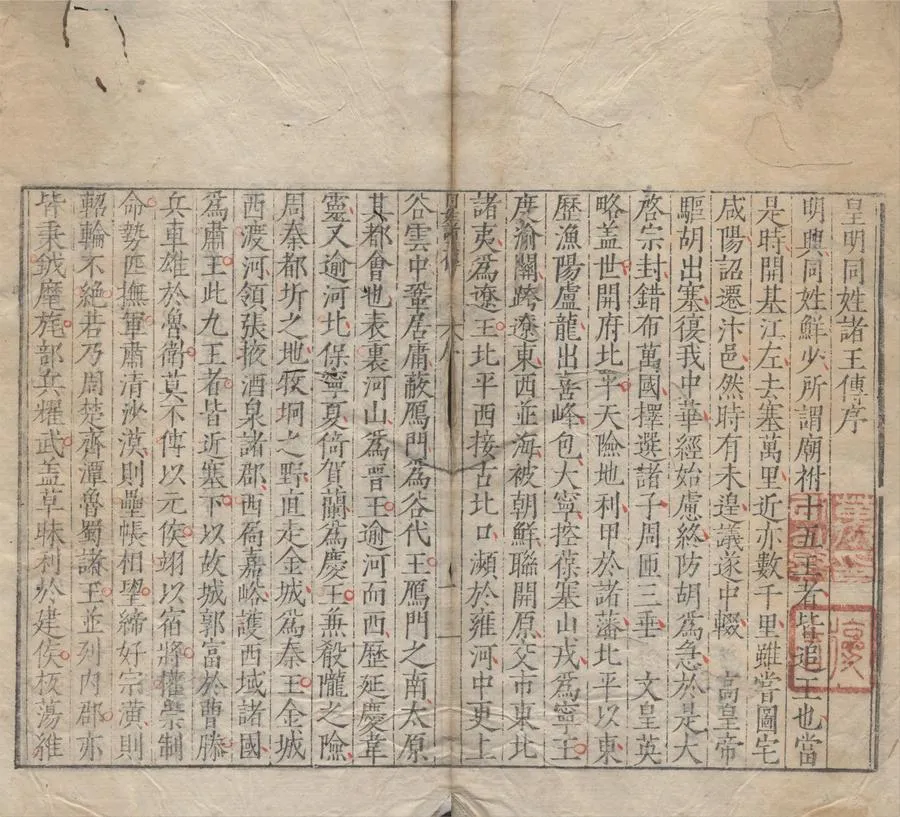 皇明同姓諸王傳序
明興同姓鮮少所謂廟祔十五王者皆追王也當
是時開基江左去塞萬里近亦數千里雖嘗圖宅
咸陽詔遷汴邑然時有未遑議遂中輟　高皇帝
驅胡出塞復我中華經始慮終防胡爲急於是大
啓宗封錯布萬國擇選諸子周匝三垂　文皇英
略蓋世開府北平天險地利甲於諸藩北平以東
歷漁陽盧龍出喜峰包大寧控葆塞山戎爲寧王
度渝關跨遼東西並海被朝鮮聯開原交市東北
諸夷爲遼王北平西接古北口瀕於雍河中更上
谷雲中鞏居庸蔽鴈門爲谷代王鴈門之南太原
其都會也表裏河山爲晉王逾河而西歷延慶韋
靈又逾河北保寧夏倚賀蘭爲慶王兼殽隴之險
周秦都圻之地牧坰之野直走金城爲秦王金城
西渡河領張掖酒泉諸郡西扃嘉峪護西域諸國
爲肅王此九王者皆近塞下以故城郭富於曹滕
兵車雄於魯衛莫不傅以元侯翊以宿將權崇制
命勢匹撫軍肅清沙漠則壘帳相望締好宗潢則
軺輪不絕若乃周楚齊潭魯蜀諸王並列内郡亦
皆秉鉞麾旄部兵耀武蓋草昧利於建侯板蕩維